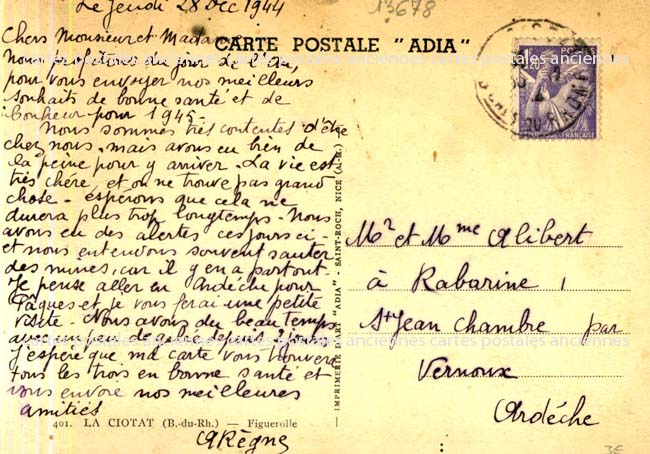 Le Jeudi 28 Dec 1944
13678
CARTE POSTALE "ADIA"
Chers Monsieur et Madame
Nous profitons du jour de l'an
pour vous envoyer nos meilleurs
souhaits de bonne santé et de
Bonheur pour 1945-
Nous sommes très contentes d'être
chez nous. mais avons eu bien de
la peine pour y arriver. La vie est
très chère, et on ne trouve pas grand
chose - esperons que cela ne
durera plus trop longtemps - Nous
avons eu des alertes ces jours ci -
et nous entendons souvent sauter
des mines, car il y en a partout.
Je pense aller en Ardèche pour
Pâques et je vous ferai une petite
visite - Nous avons du beau temps
un peu de depuis jours
J'espère que ma carte vous trouvera
tous les trois en bonne santé et
vous envoie nos meilleures
amitiés
ARègne
401. LA CIOTAT (B.-du-Rh.) — Figuerolle
IMPRIMERIE D'ART "ADIA" - SAINT-ROCH, NICE (A.-M.)
POSTES
Mr et Mme Alibert
à Rabarine,
St Jean Chambre par
Vernoux
Ardèche
anciennes cartes postales anciennes cartes postales anciennes
3E